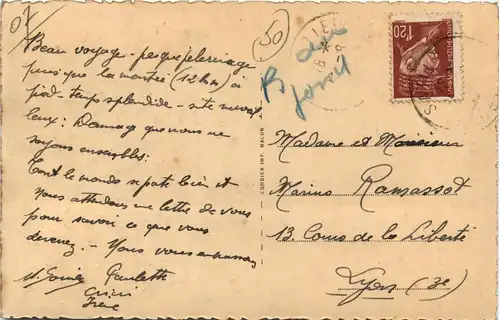 01
50
Beau voyage - presque pelerinage
puisque la montée (12 km) à
pied - temps splendide - site merveil
leux : Dommage que nous ne
soyons ensembles.
Tout le monde se porte bien et
nous attendons une lettre de vous
pour savoir ce que vous
devenez. - Nous vous embrassons
Paulette
Irène
COMBIER IMP. MACON
1F20
Madame et Monsieur
Marius Ramassot
13. Cours de la Liberté
Lyon (3e)